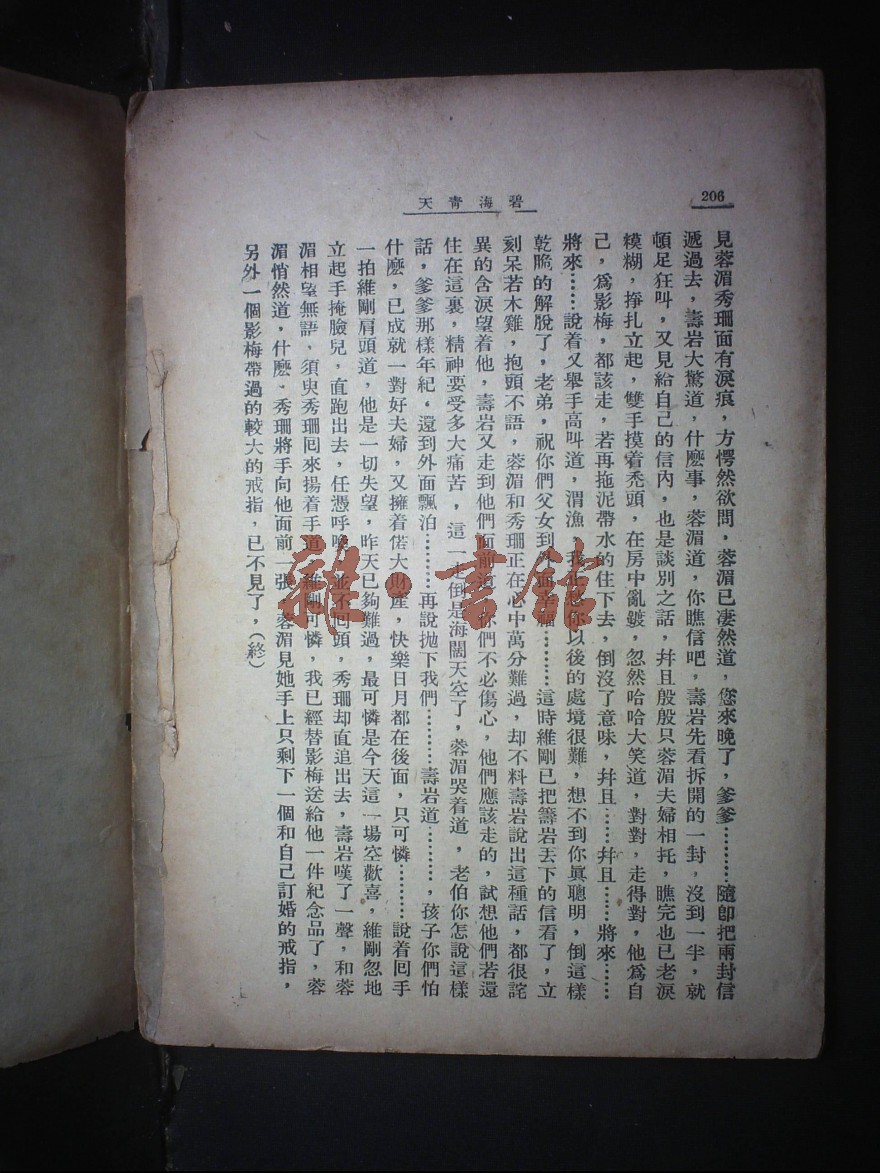 206
碧海青天
見蓉湄秀珊面有淚痕，方愕然欲問，蓉湄已凄然道，您來晚了，爹爹………隨卽把兩封信
遞過去，壽岩大驚道，什麽事，蓉湄道，你瞧信吧，壽岩先看拆開的一封，沒到一半，就
頓足狂叫，又見給自己的信內，也是談別之話，幷且殷殷只蓉湄夫婦相托，瞧完也已老淚
糢糊，掙扎立起，雙手摸着禿頭，在房中亂鍍，忽然哈哈大笑道，對對，走得對，他爲自
己，爲影梅，都該走，若再拖泥帶水的住下去，倒沒了意味，幷且……幷且……將來……
將來……說着又舉手高叫道，渭漁，我正愁你以後的處境很難，想不到你眞聰明，倒這樣
乾脆的解脫了，老弟，祝你們父女到外面………這時維剛已把籌岩丟下的信看了，立
刻呆若木雞，抱頭不語，蓉湄和秀珊正在心中萬分難過，却不料壽岩說出這種話，都很詫
異的含淚望着他，壽岩又走到他們面前道，你們不必傷心，他們應該走的，試想他們若還
住在這裏，精神要受多大痛苦，這一走倒是海闊天空了，蓉湄哭着道，老伯你怎說這樣
話，爹爹那樣年紀，還到外面飄泊………再說拋下我們………壽岩道………，孩子你們怕
什麽，已成就一對好夫婦，又擁着偌大財產，快樂日月都在後面，只可憐………說着囘手
一拍維剛肩頭道，他是一切失望，昨天已夠難過，最可憐是今天這一場空歡喜，維剛忽地
立起手掩臉兒，直跑出去，任憑呼喚，並不囘頭，秀珊却直追出去，壽岩嘆了一聲，和蓉
湄相望無語，須臾秀珊囘來揚着手道，維剛可憐，我已經替影梅送給他一件紀念品了，蓉
湄悄然道，什麽，秀珊將手向他面前一張，蓉湄見她手上只剩下一個和自己訂婚的戒指，
另外一個影梅帶過的較大的戒指，已不見了，（終）
雜·書館